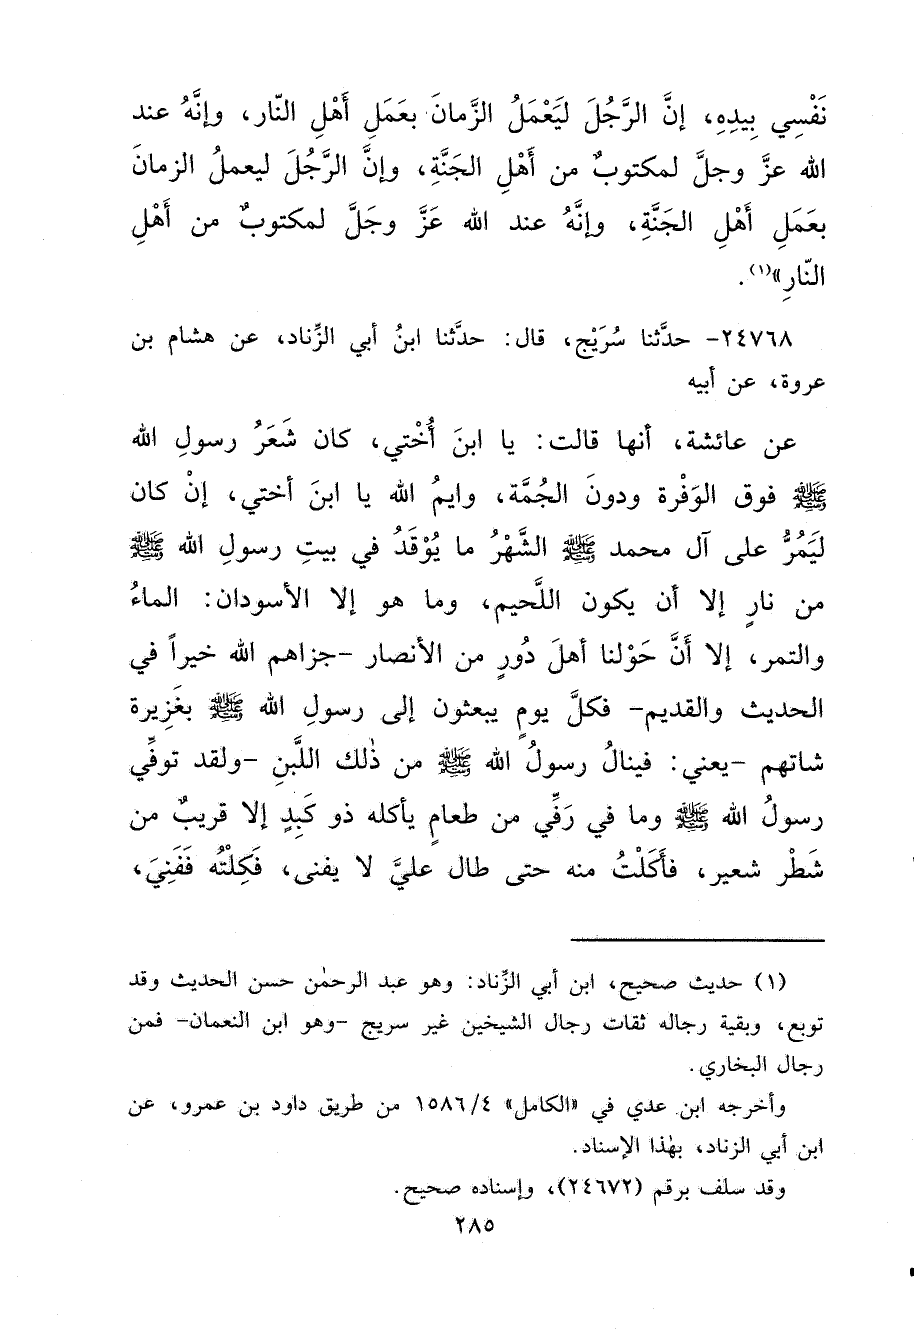 نَفْسِي بِيدِهِ، إنَّ الرَّجُلَ لَيَعْمَلُ الزَّمانَ بعَمَلِ أَهْلِ النّار، وإنَّهُ عند
الله عزَّ وجلَّ لمكتوبٌ من أَهْلِ الجَنَّةِ، وإنَّ الرَّجُلَ ليعملُ الزمانَ
بعَمَلِ أَهْلِ الجَنَّةِ، وإنَّهُ عند الله عَزَّ وجَلَّ لمكتوبٌ من أَهْلِ
النّارِ»(١).
٢٤٧٦٨- حدَّثنا سُرَيْج، قال: حدَّثنا ابنُ أبي الزِّناد، عن هشام بن
عروة، عن أبيه
عن عائشة، أنها قالت: يا ابنَ أُخْتي، كان شَعَرُ رسولِ الله
ﷺ فوق الوَفْرة ودونَ الجُمَّة، وايمُ الله يا ابنَ أختي، إنْ كان
لَيَمُرُّ على آل محمد ﷺ الشَّهْرُ ما يُوْقَدُ في بيتِ رسولِ الله ﷺ
من نارٍ إلا أن يكون اللَّحيم، وما هو إلا الأسودان: الماءُ
والتمر، إلا أَنَّ حَوْلنا أهلَ دُورٍ من الأنصار -جزاهم الله خيراً في
الحديث والقديم- فكلَّ يومٍ يبعثون إلى رسولِ الله ﷺ بغَزِيرة
شاتهم -يعني: فينالُ رسولُ الله ﷺ من ذٰلك اللَّبنِ -ولقد توفِّي
رسولُ الله ﷺ وما في رَفِّي من طعامٍ يأكله ذو كَبِدٍ إلا قريبٌ من
شَطْر شعير، فأَكَلْتُ منه حتى طال عليَّ لا يفنى، فَكِلْتُه فَفَنِيَ،
(١) حديث صحيح، ابن أبي الزِّناد: وهو عبد الرحمٰن حسن الحديث وقد
توبع، وبقية رجاله ثقات رجال الشيخين غير سريج -وهو ابن النعمان- فمن
رجال البخاري.
وأخرجه ابن عدي في «الكامل» ١٥٨٦/٤ من طريق داود بن عمرو، عن
ابن أبي الزناد، بهٰذا الإسناد.
وقد سلف برقم (٢٤٦٧٢)، وإسناده صحيح.
٢٨٥